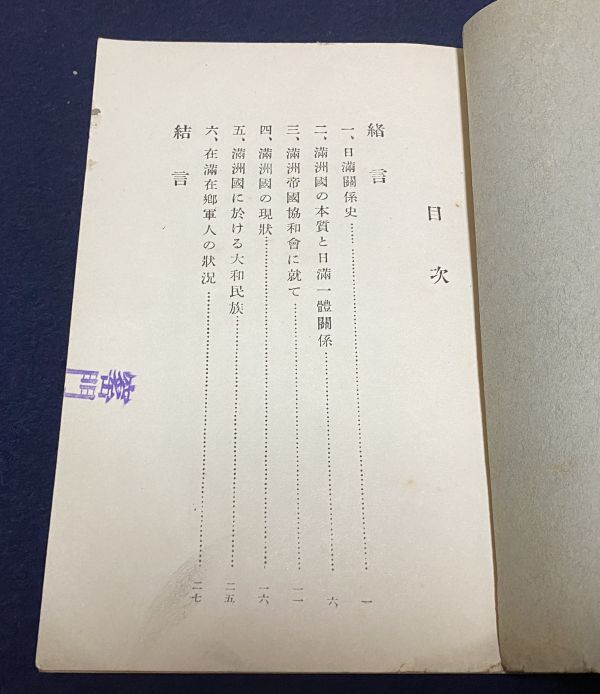 目次
緒言
一、日滿關係史……一
二、滿洲國の本質と日滿一體關係……六
三、滿洲帝國協和會に就て……一一
四、滿洲國の現狀……一六
五、滿洲國に於ける大和民族……二五
六、在滿在鄕軍人の狀況……二七
結言